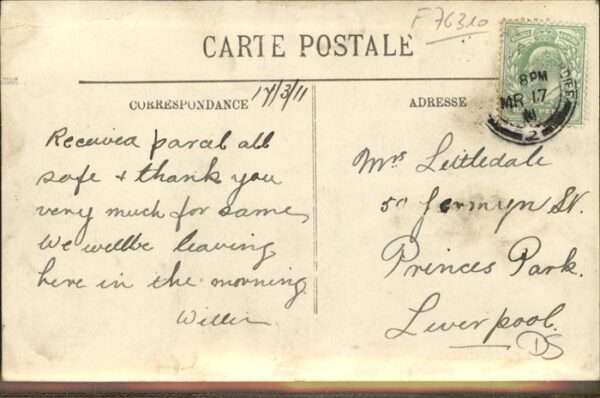 F 76310
CARTE POSTALE
8 PM
MR 17
11
2
CORRESPONDANCE 17/3/11
ADRESSE
Received parcel all
safe & thank you
very much for same,
We willbe leaving
here in the morning
Willie
Mrs Littledale
50 Jermyn St.
Princes Park.
Liverpool.
DS